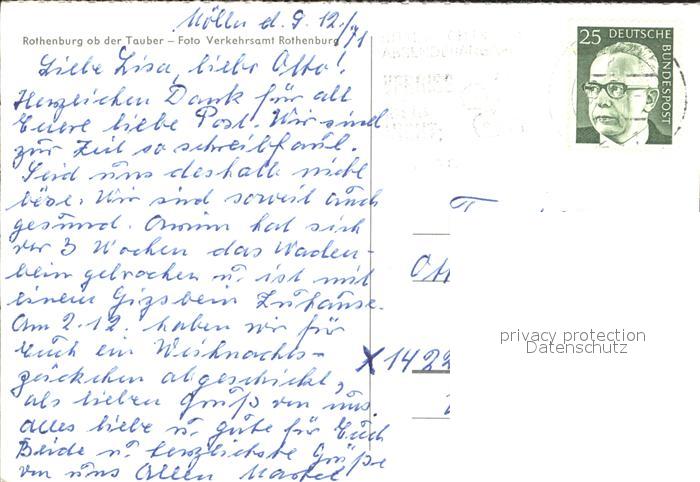 Mölln d. 9.12./71
Rothenburg ob der Tauber – Foto Verkehrsamt Rothenburg
25 DEUTSCHE
BUNDESPOST
Liebe Lisa, lieber Otto!
Herzlichen Dank für all
Euere liebe Post. Wir sind
zur Zeit so schreibfaul.
Seid uns deshalb nicht
böse. Wir sind soweit auch
gesund. Armin hat sich
vor 3 Wochen das Waden-
bein gebrochen u. ist mit
einem Gipsbein Zuhause.
Am 2.12. haben wir für
Euch ein Weihnachts-
päckchen abgeschickt,
als lieben Gruß von uns.
Alles liebe u. gute für Euch
Beide u. herzlichste Grüße
von uns Allen
Ott
X 1422
privacy protection
Datenschutz